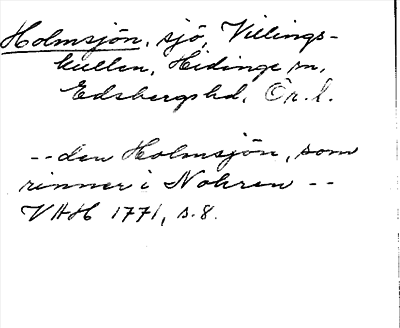 Holmsjön, sjö, Villings-
kullen, Hidinge sn,
Edsbergs hd, Ör. l.
--den Holmsjön, som
rinner i Nohren --
VHH 1771, s. 8.